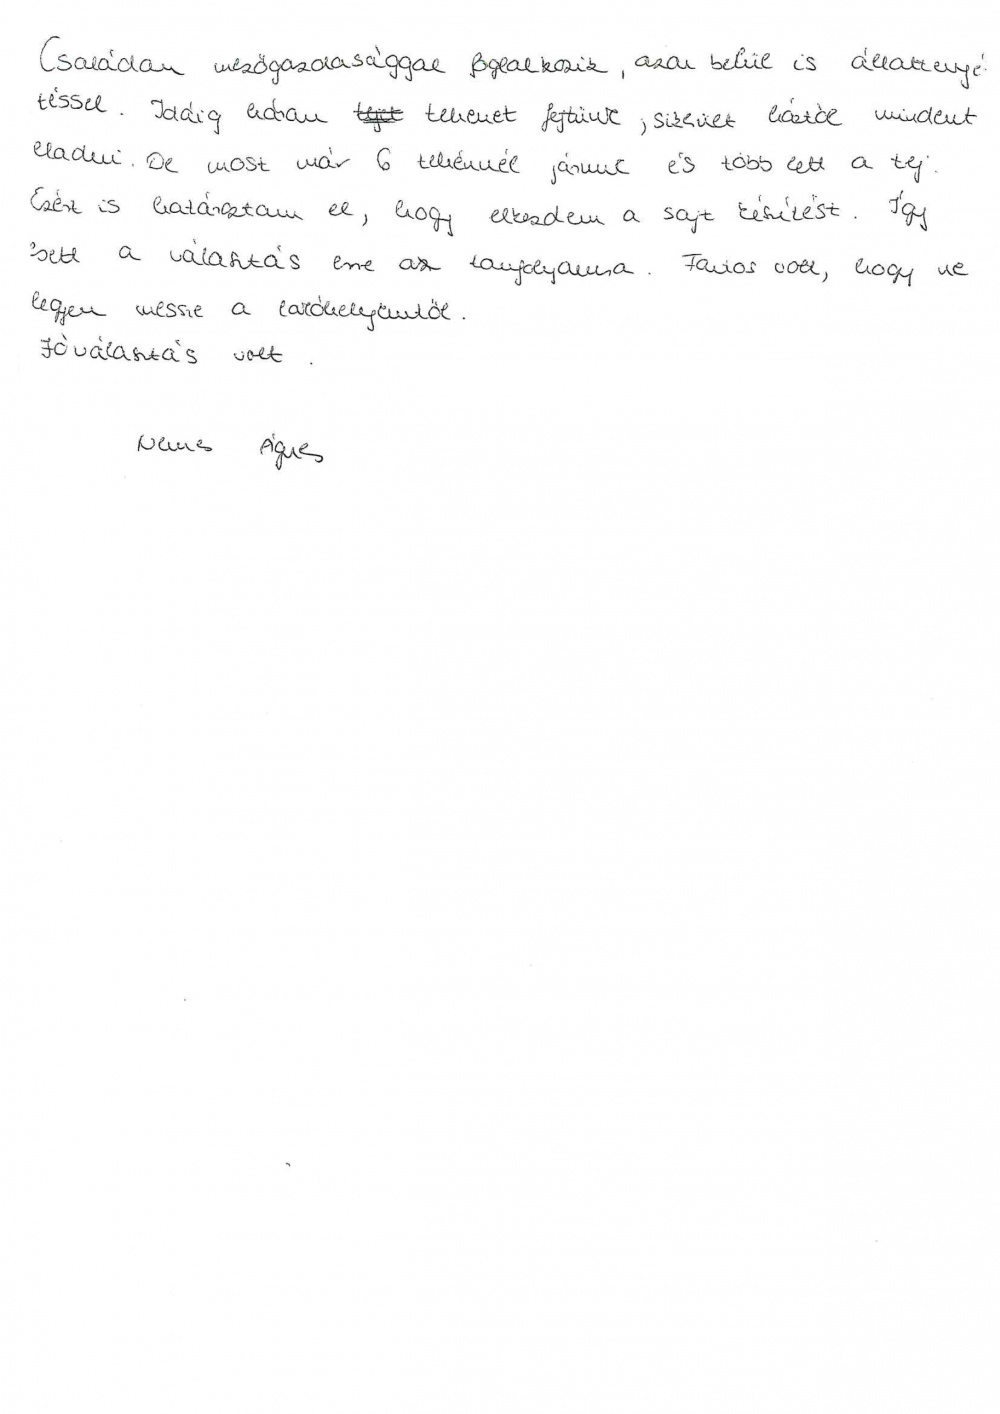 Családom mezőgazdasággal foglalkozik, azon belül is állattenyé-
téssel. Idáig három tehenet fejtünk, sikerült háztól mindent
eladni. De most már 6 tehénnél járunk és több lett a tej.
Ezért is határoztam el, hogy elkezdem a sajt készítést. Így
lett a választás erre az tanfolyamra. Fontos volt, hogy ne
legyen messze a lakóhelyemtől.
Jó választás volt.
Nemes Ágnes